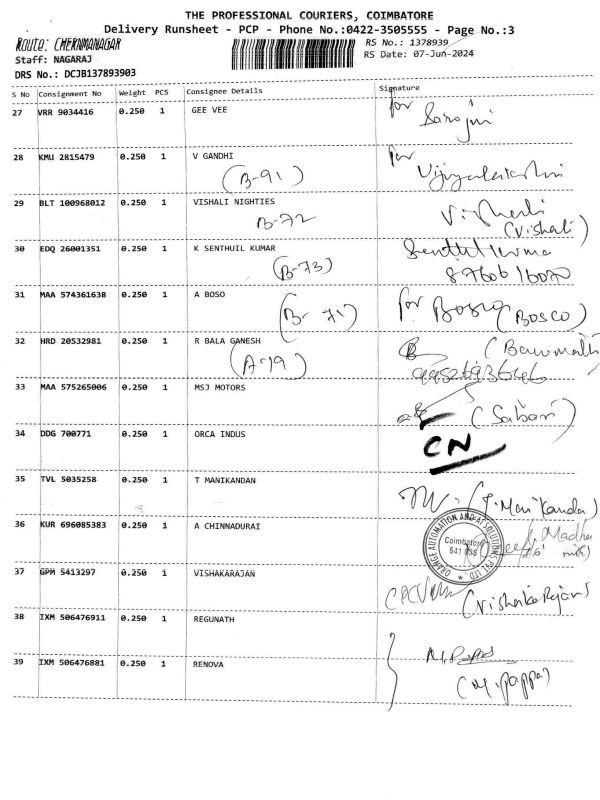 THE PROFESSIONAL COURIERS, COIMBATORE
Delivery Runsheet - PCP - Phone No.:0422-3505555 - Page No.:3
Route: CHERNMANAGAR
RS No.: 1378939
Staff: NAGARAJ
RS Date: 07-Jun-2024
DRS No.: DCJB137893903
S No Consignment No Weight PCS Consignee Details Signature
27 VRR 9034416 0.250 1 GEE VEE for Sarojni
28 KMU 2815479 0.250 1 V GANDHI for
(B-91)
29 BLT 100968012 0.250 1 VISHALI NIGHTIES
B-72 (Vishali)
30 EDQ 26001351 0.250 1 K SENTHUIL KUMAR
(B-73)
31 MAA 574361638 0.250 1 A BOSO for Bosco (BOSCO)
(B-71)
32 HRD 20532981 0.250 1 R BALA GANESH
(A-19)
33 MAA 575265006 0.250 1 MSJ MOTORS
(Sabari)
34 DDG 700771 0.250 1 ORCA INDUS
CN
35 TVL 5035258 0.250 1 T MANIKANDAN
(T. Manikandan)
36 KUR 696085383 0.250 1 A CHINNADURAI
ORANGE AUTOMATION AND AI SOLUTIONS PVT. LTD.
Coimbatore
641 035
37 GPM 5413297 0.250 1 VISHAKARAJAN
(VishakaRajan)
38 IXM 506476911 0.250 1 REGUNATH
39 IXM 506476881 0.250 1 RENOVA
(M. pappa)